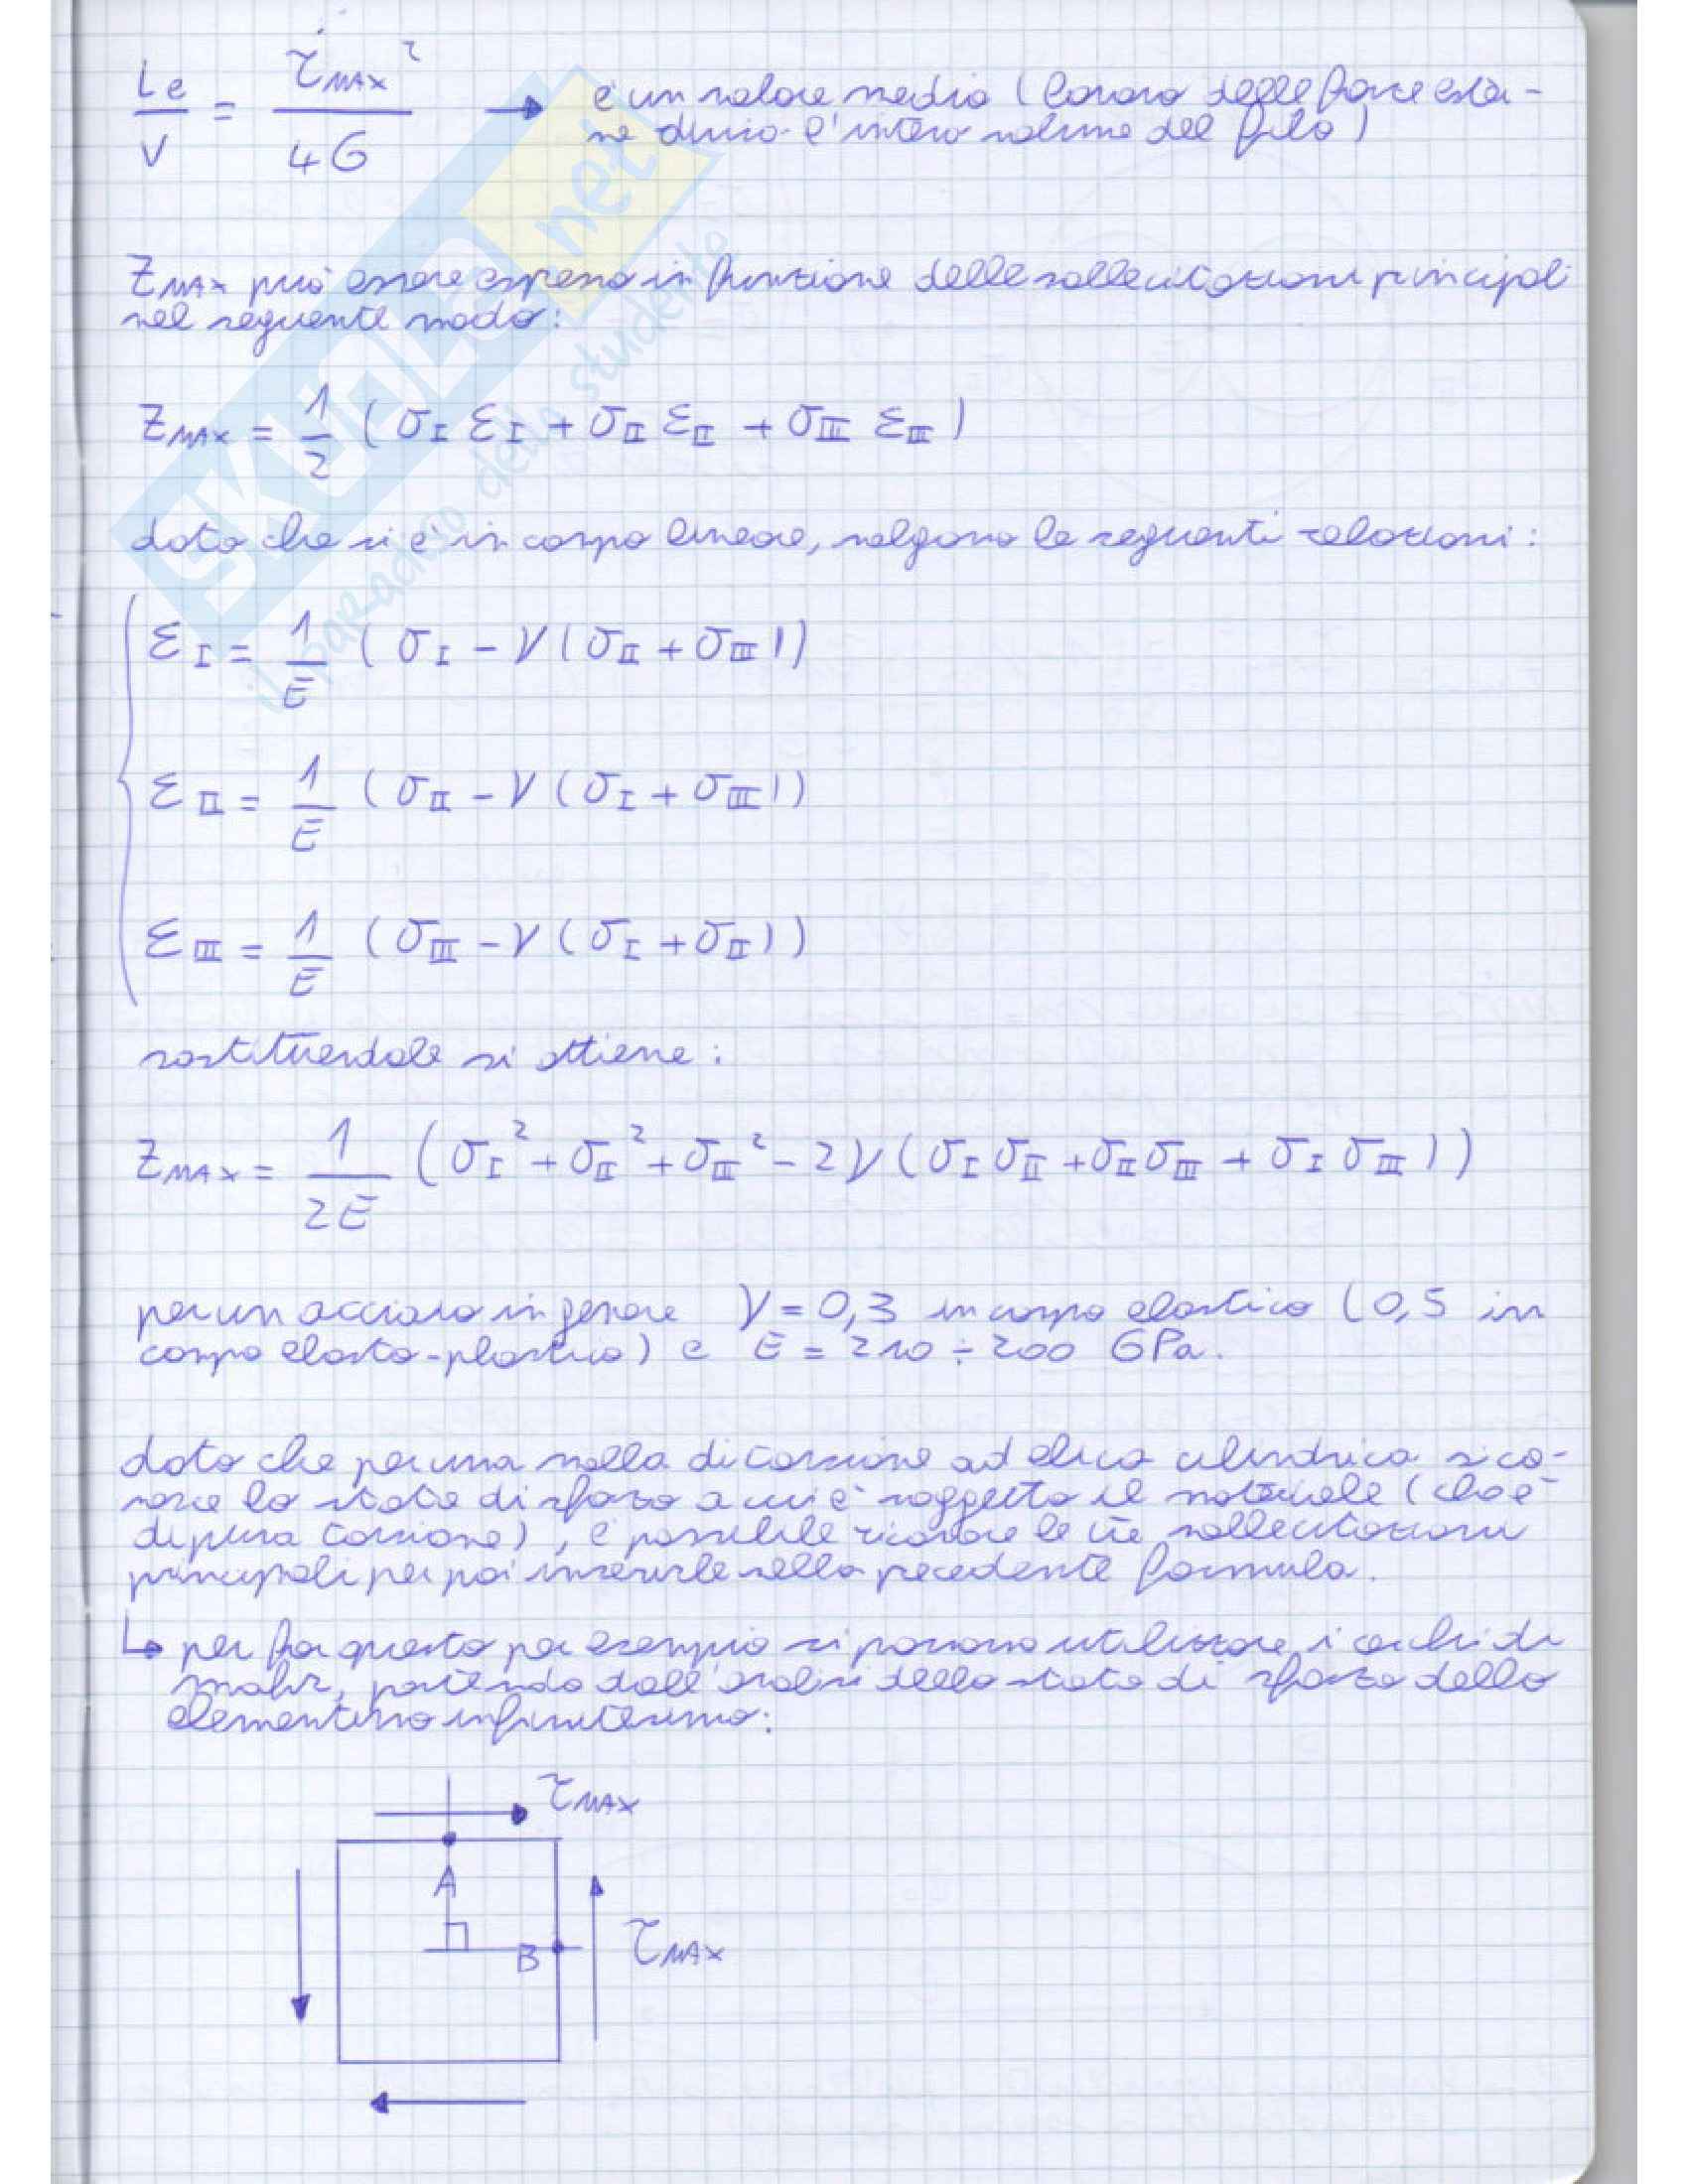 Le/V = τMAX²/4G → è un valore medio (lavoro delle forze ester-
ne diviso l'intero volume del filo)
ZMAX può essere espresso in funzione delle sollecitazioni principali
nel seguente modo:
ZMAX = 1/2 (σI εI + σII εII + σIII εIII)
dato che si è in campo lineare, valgono le seguenti relazioni:
εI = 1/E (σI - ν(σII + σIII))
εII = 1/E (σII - ν(σI + σIII))
εIII = 1/E (σIII - ν(σI + σII))
sostituendole si ottiene:
ZMAX = 1/2E (σI² + σII² + σIII² - 2ν(σI σII + σII σIII + σI σIII))
per un acciaio in genere ν = 0,3 in campo elastico (0,5 in
campo elasto-plastico) e E = 210 ÷ 200 GPa.
dato che per una molla di torsione ad elica cilindrica si co-
nosce lo stato di sforzo a cui è soggetto il materiale (che è
di pura torsione), è possibile ricavare le tre sollecitazioni
principali per poi inserirle nella precedente formula.
↳ per far questo per esempio si possono utilizzare i cerchi di
mohr, partendo dall'analisi dello stato di sforzo dello
elementino infinitesimo:
τMAX
A
B
τMAX
SKUOLA.net
il paradiso dello studente